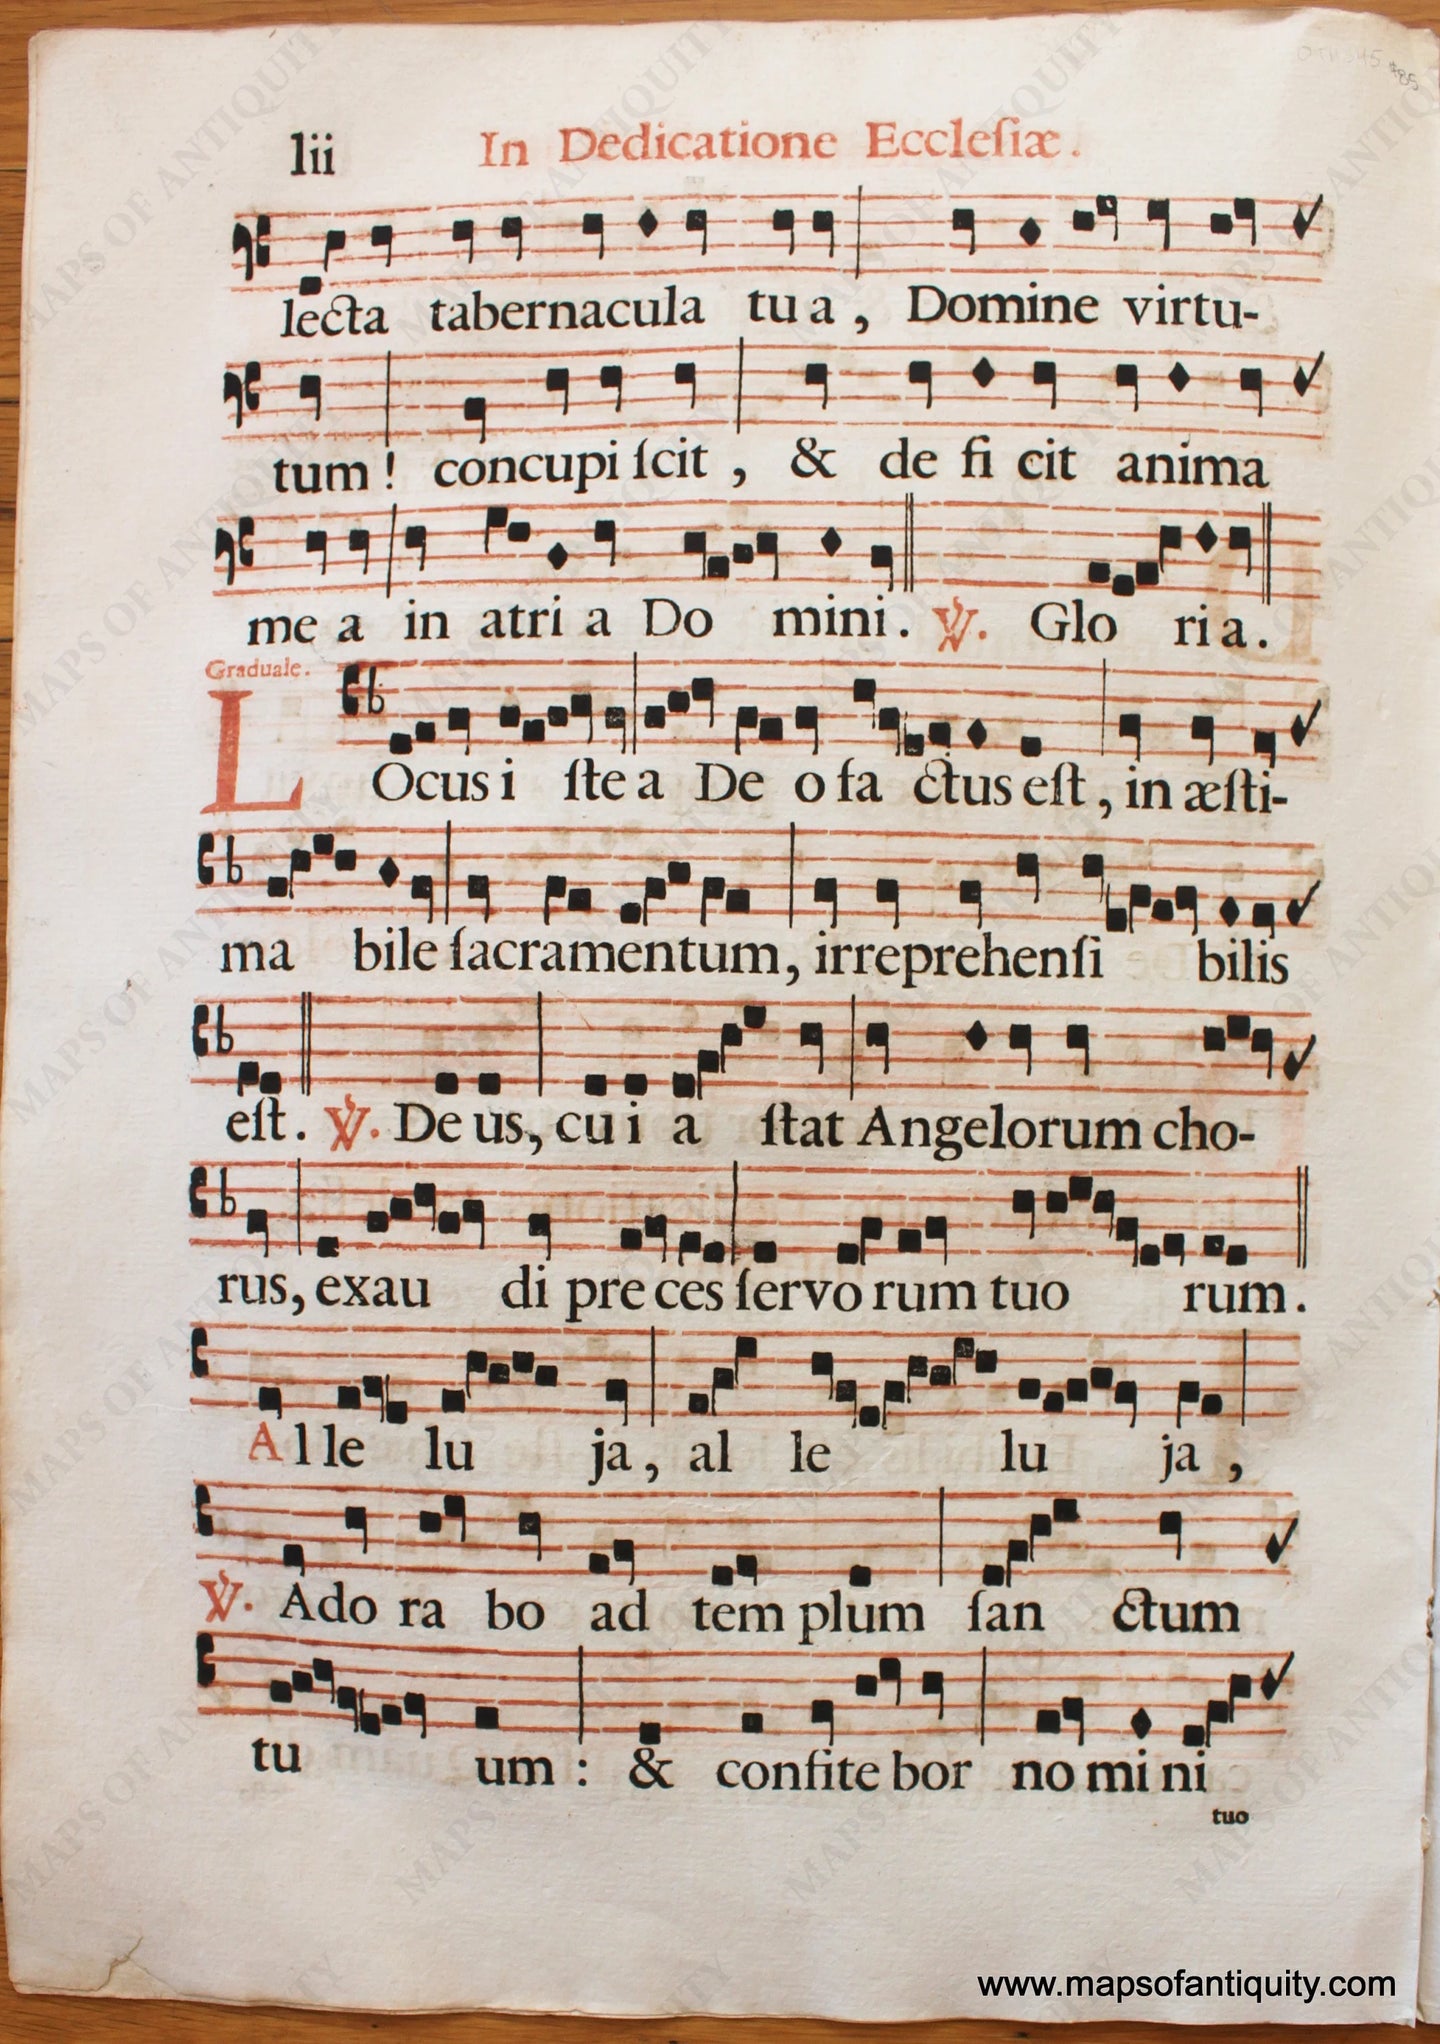 lii In Dedicatione Eccleſiæ.
lecta tabernacula tu a , Domine virtu-
tum ! concupi ſcit , & de fi cit anima
me a in atri a Do mini. ℣. Glo ri a.
Graduale.
LOcus i ſte a De o fa ctus eſt, in æſti-
ma bile ſacramentum, irreprehenſi bilis
eſt. ℣. De us, cu i a ſtat Angelorum cho-
rus, exau di pre ces ſervo rum tuo rum.
Al le lu ja, al le lu ja ,
℣. Ado ra bo ad tem plum ſan ctum
tu um : & confite bor no mi ni
tuo
MAPS OF ANTIQUITY
www.mapsofantiquity.com